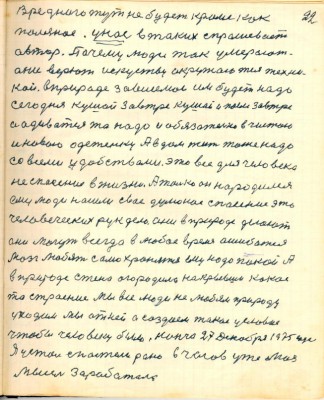 Вредного тут не будет кроме как
полезное. У нас в таких спрашивает
автор. Почему люди так умерают.
они верют искуству окружаются техни-
кой. в природе зависемом им будет надо
сегодня кушай завтре кушай и после завтре
а одиватся то надо и обязательно в чистою
и новою одетенку А в дом тит тоже надо
со всеми удобствами. Это все для человека
не спасение в жизни. А только он народился
ему люди нашли свое спасение это
человеческих рук дело. они в природе делают
они могут всегда в любое время ошибатся
Мозг любят само хронится ему надо покой А
в природе стена огородила накрывши какое
та строение. Мы все люди не любем природу
уходим мы от ней а создаем такое условие
чтобы человеку было, конча 27 декабря 1975 года
Я устал спать рано в часов уже моя
Мысел Заработала
22